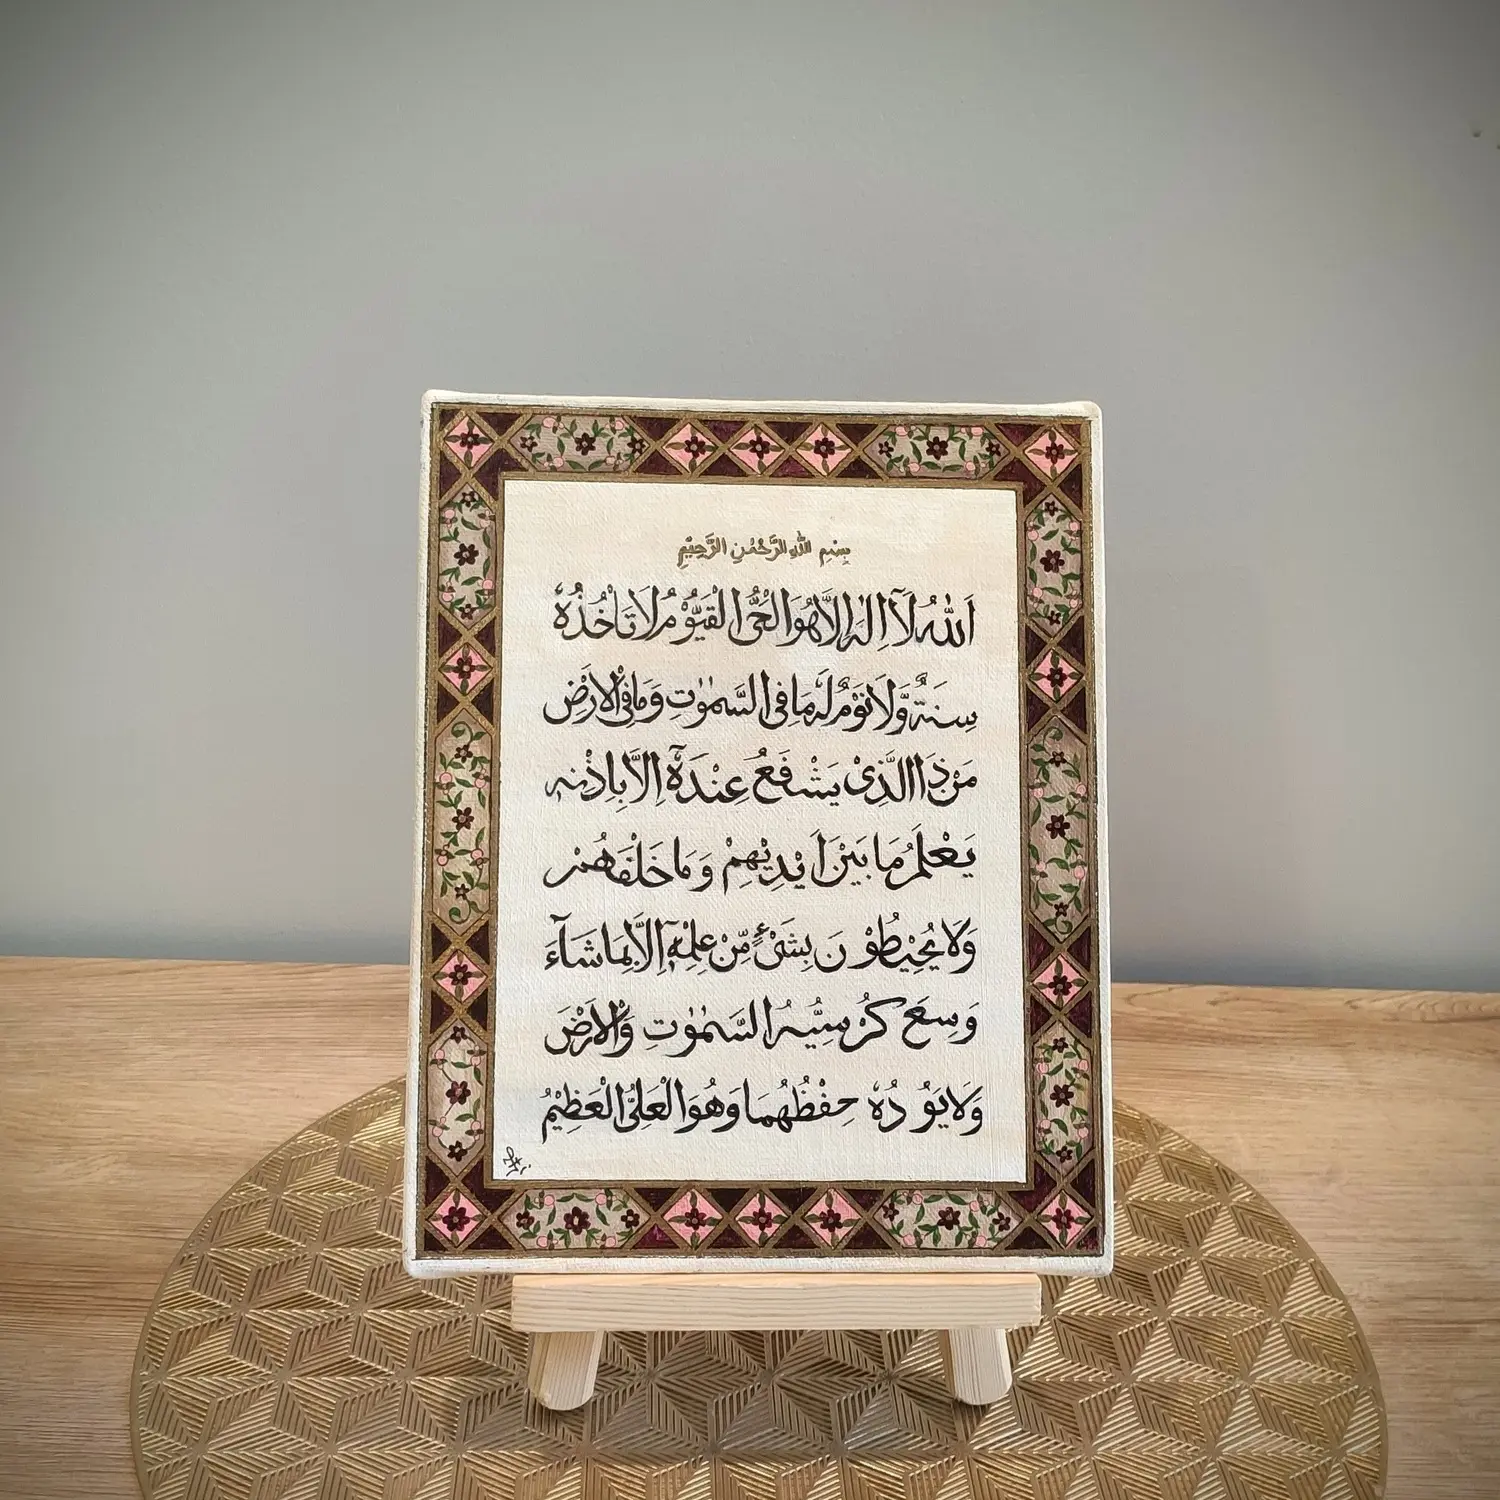 بِسْمِ اللّٰهِ الرَّحْمٰنِ الرَّحِيْمِ
اَللّٰهُ لَآ اِلٰهَ اِلَّا هُوَ الْحَىُّ الْقَيُّوْمُ لَا تَاْخُذُهٗ
سِنَةٌ وَّلَا نَوْمٌ لَهٗ مَا فِى السَّمٰوٰتِ وَمَا فِى الْاَرْضِ
مَنْ ذَا الَّذِىْ يَشْفَعُ عِنْدَهٗٓ اِلَّا بِاِذْنِهٖ
يَعْلَمُ مَا بَيْنَ اَيْدِيْهِمْ وَمَا خَلْفَهُمْ
وَلَا يُحِيْطُوْنَ بِشَىْءٍ مِّنْ عِلْمِهٖٓ اِلَّا بِمَا شَآءَ
وَسِعَ كُرْسِيُّهُ السَّمٰوٰتِ وَالْاَرْضَ
وَلَا يَؤُدُهٗ حِفْظُهُمَا وَهُوَ الْعَلِىُّ الْعَظِيْمُ